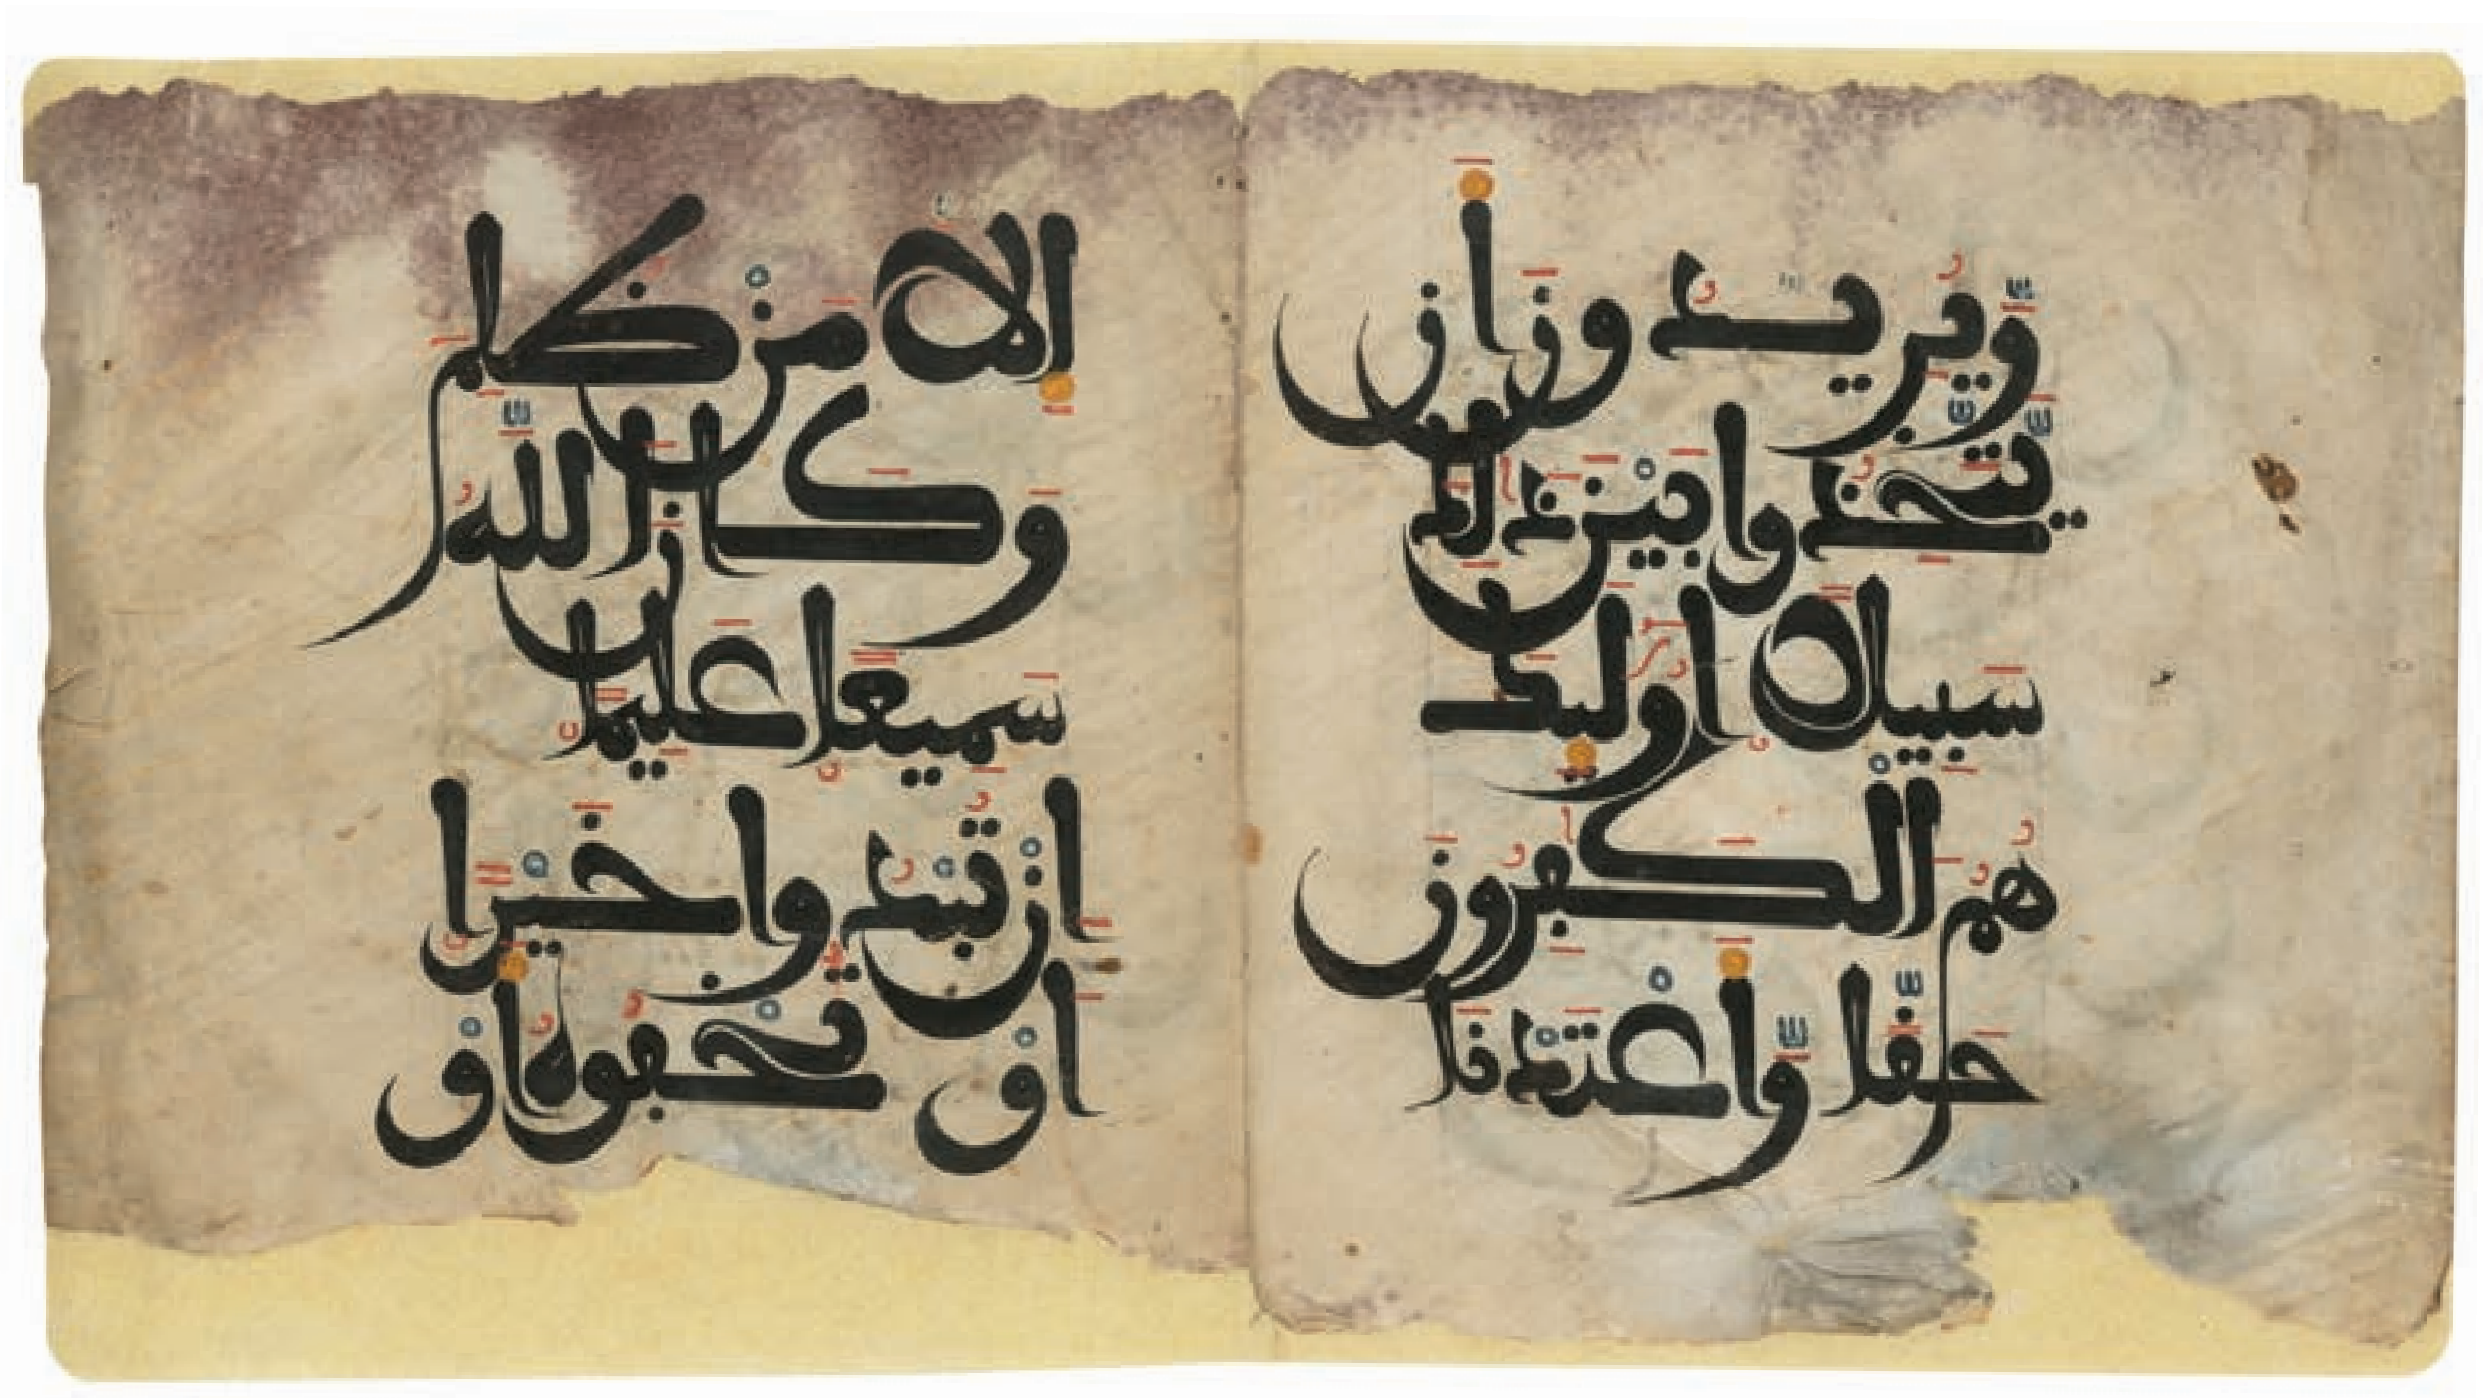 وَّيُرِيدُونَ أَن
يَّتَّخِذُوا بَيْنَ ذَٰلِكَ
سَبِيلًا أُولَٰئِكَ
هُمُ الْكَٰفِرُونَ
حَقًّا وَّأَعْتَدْنَا
إِلَّا مَنْ ظُلِمَ
وَكَانَ اللَّهُ
سَمِيعًا عَلِيمًا
إِنْ تُبْدُوا خَيْرًا
أَوْ تُخْفُوهُ أَوْ